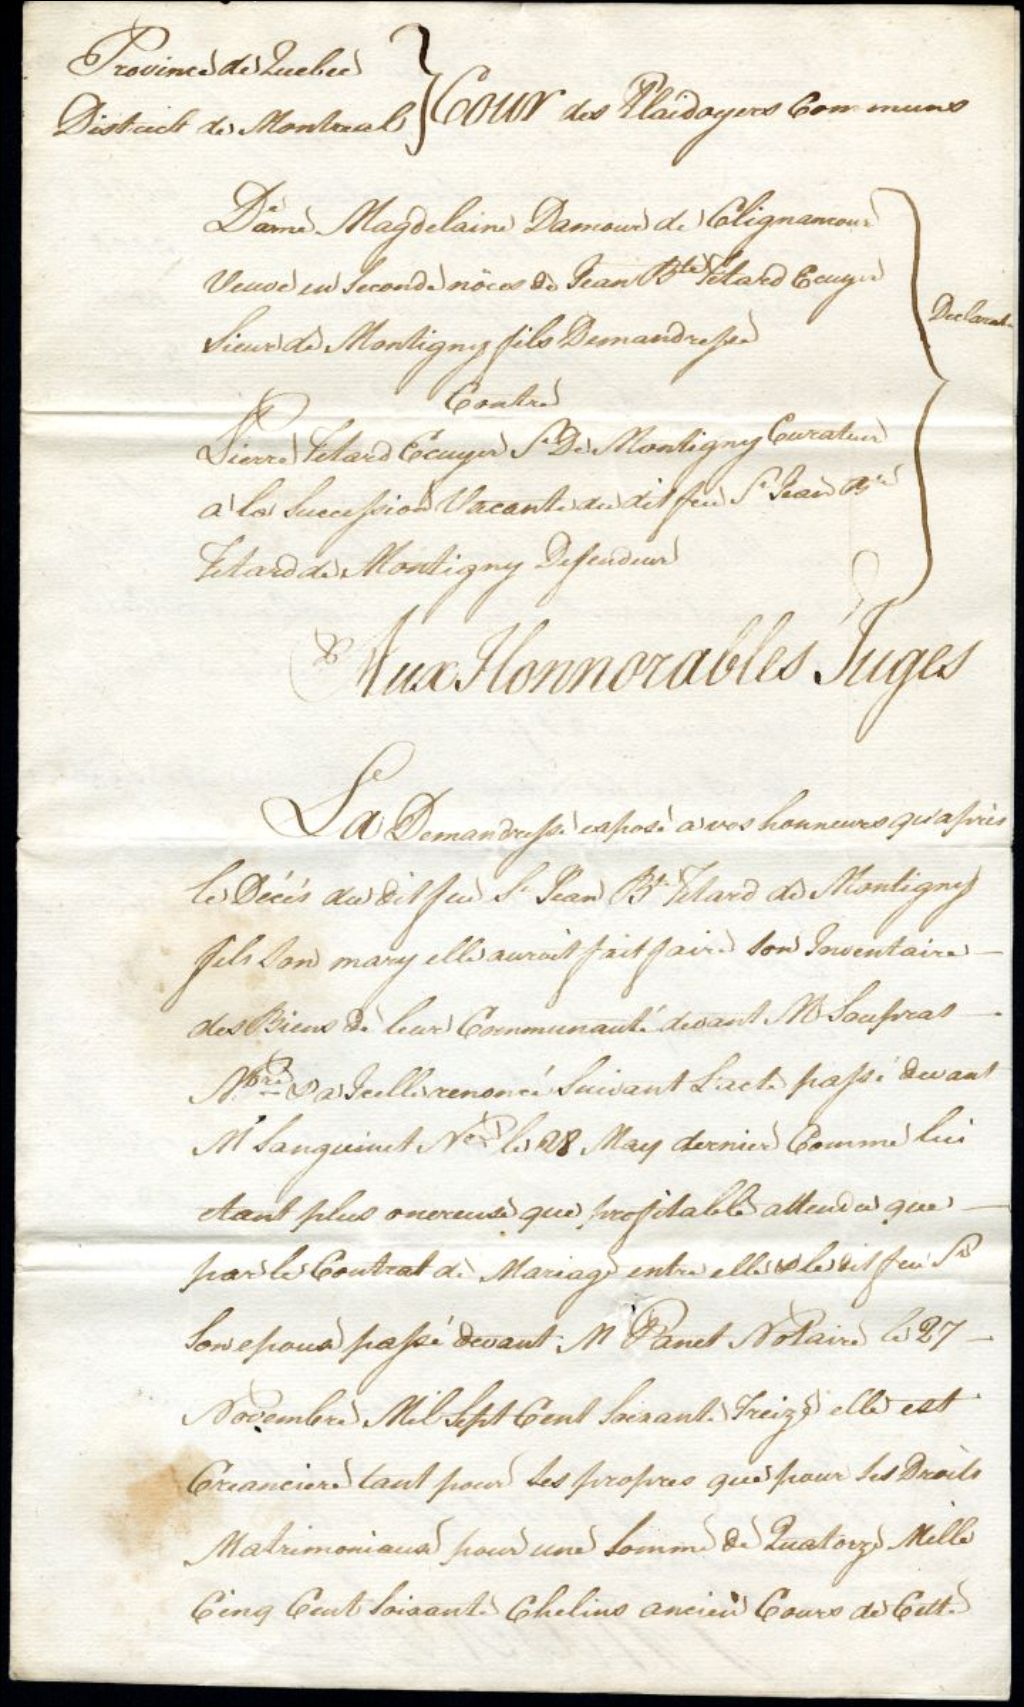 Province de Quebec
District de Montreal } Cour des Plaidoyers Communs
Dame Magdelaine Damour de Clignancour
Veuve en Seconde nôces de Jean Bte Tetard Ecuyer
Sieur de Montigny fils Demandresse
Declarat.
Contre
Pierre Tetard Ecuyer Sr De Montigny Curateur
a la Succession Vacante du dit feu Sr Jean Bte
Tetard de Montigny Deffendeur
Aux Honnorables Juges
La Demandresse expose a vos honneurs qu'après
le Décés du dit feu Sr Jean Bt Tetard de Montigny
fils Son mary elle auroit fait faire Son Inventaire
des Biens de leur Communauté devant M Soupras
Nre & a Icelle renoncé Suivant L'acte passé devant
Mr Sanguinet Nre le 28 May dernier Comme lui
etant plus onereuse que proffitable attendu que
par le Contrat de Mariage entre elle & le dit feu Sr
Son epoux passé devant M Panet Notaire le 27
Novembre Mil Sept Cent Soixante Treize elle est
Creanciere tant pour Ses propres que pour Ses Droits
Matrimoniaux pour une Somme de Quatorze Mille
Cinq Cent Soixante Chelins ancien Cours de Cette